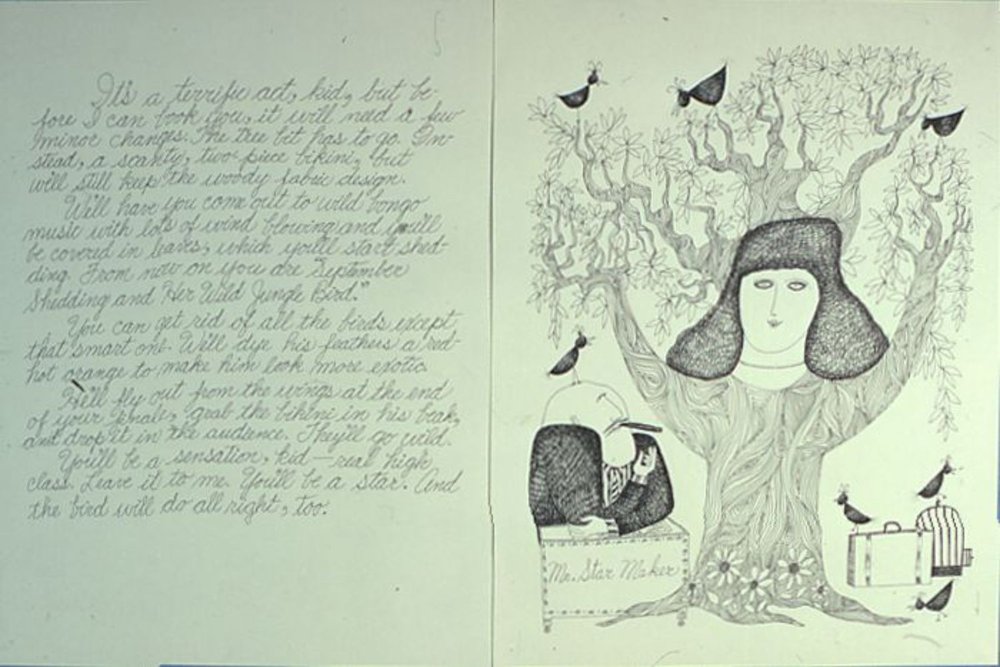 It's a terrific act, kid, but be-
fore I can book you, it will need a few
minor changes. The tree bit has to go. In-
stead, a scanty, two-piece bikini, but
will still keep the woody fabric design.
We'll have you come out to wild bongo
music with lots of wind blowing and you'll
be covered in leaves, which you'll start shed-
ding. From now on you are "September
Shedding and Her Wild Jungle Bird."
You can get rid of all the birds except
that smart one. We'll dye his feathers a red-
hot orange to make him look more exotic.
He'll fly out from the wings at the end
of your finale, grab the bikini in his beak,
and drop it in the audience. They'll go wild.
You'll be a sensation, kid—real high
class. Leave it to me. You'll be a star. And
the bird will do all right, too.
Mr. Star Maker